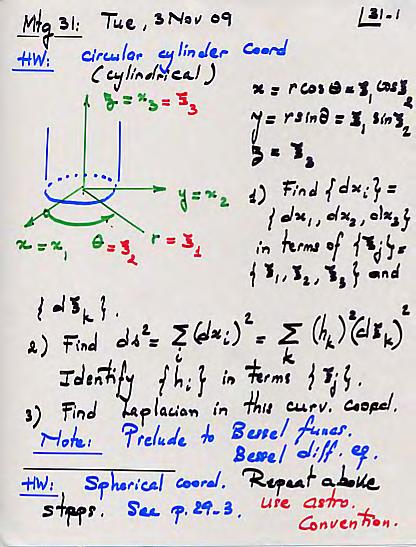 Mtg 31: Tue, 3 Nov 09
31-1
HW: circular cylinder coord
(cylindrical)
z = x₃ = ξ₃
y = x₂
x = x₁
θ = ξ₂
r = ξ₁
x = r cos θ = ξ₁ cos ξ₂
y = r sin θ = ξ₁ sin ξ₂
z = ξ₃
1) Find {dxᵢ} =
{dx₁, dx₂, dx₃}
in terms of {ξⱼ} =
{ξ₁, ξ₂, ξ₃} and
{dξₖ}.
2) Find ds² = Σᵢ (dxᵢ)² = Σₖ (hₖ)² (dξₖ)²
Identify {hᵢ} in terms {ξⱼ}.
3) Find Laplacian in this curv. coord.
Note: Prelude to Bessel funcs.
Bessel diff. eq.
HW: Spherical coord. Repeat above
steps. See p. 29-3. use astro.
Convention.